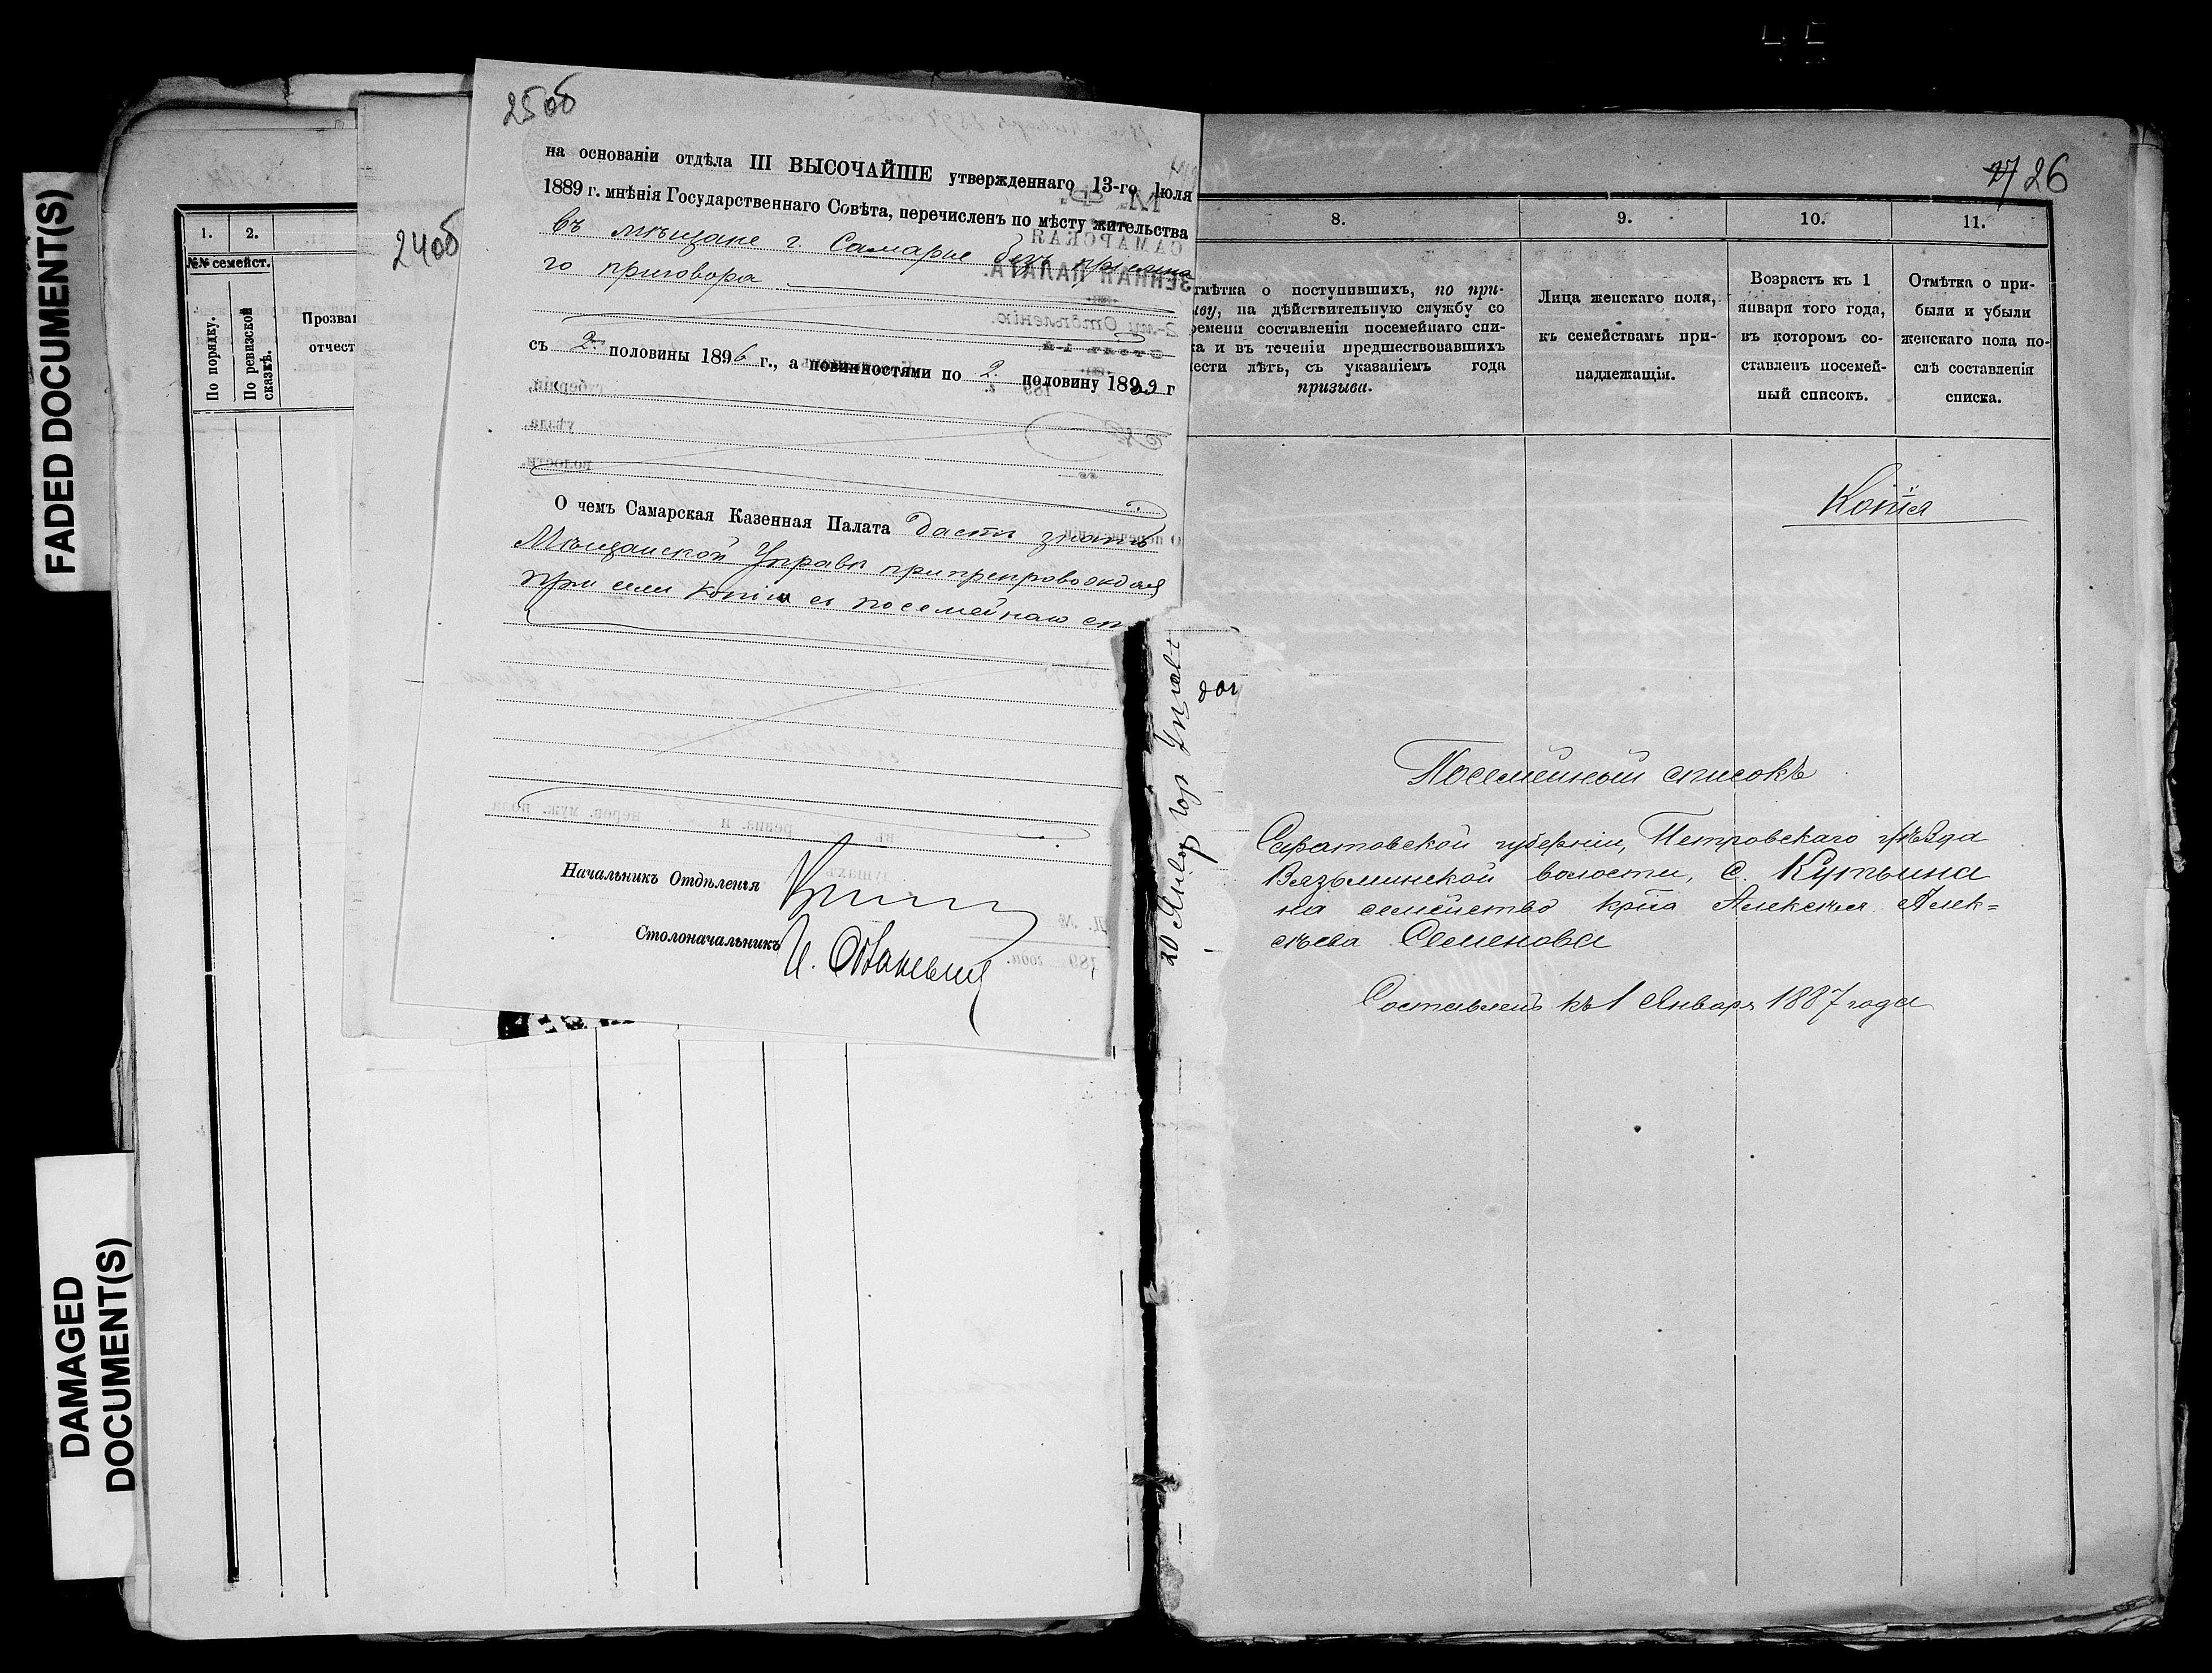 FADED DOCUMENT(S)
DAMAGED
DOCUMENT(S)
24об
1.
2.
№№ семейст.
По порядку.
По ревизской
сказкѣ.
Прозва
отчест
25об
на основаніи отдѣла III ВЫСОЧАЙШЕ утвержденнаго 13-го Іюля
1889 г. мнѣнія Государственнаго Совѣта, перечисленъ по мѣсту жительства
въ мѣщане г. Самары безъ пріемна
го приговора
съ 2 половины 1896 г., а повинностями по 2. половину 1899 г
О чемъ Самарская Казенная Палата даетъ знать
Мѣщанской Управѣ припрепровождая
при семъ копію съ посемейнаго сп
Начальникъ Отдѣленія
Столоначальникъ
20 Январ Гор Управѣ
26
8.
9.
10.
11.
тмѣтка о поступившихъ, по при-
ыву, на дѣйствительную службу со
ремени составленія посемейнаго спи-
ка и въ теченіи предшествовавшихъ
ести лѣтъ, съ указаніемъ года
призыва.
Лица женскаго пола,
къ семействамъ при-
надлежащія.
Возрастъ къ 1
января того года,
въ которомъ со-
ставленъ посемей-
ный списокъ.
Отмѣтка о при-
были и убыли
женскаго пола по-
слѣ составленія
списка.
Копія
Посемейный списокъ
Саратовской губерніи, Петровскаго уѣзда
Вязьминской волости, с. Кутьина
на семейство кр͠на Алексѣя Алек=
сѣева Семенова
Составленъ къ 1 Января 1887 года